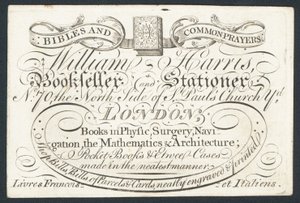 BIBLES AND COMMON PRAYERS
William Harris,
Bookseller and Stationer
No. 70, the North Side of St. Pauls Church Yd.
LONDON;
Books in Physic, Surgery, Navi
gation, the Mathematics & Architecture;
Pocket Books & Etwee Cases
made in the neatest manner.
Shop Bills, Bills of Parcels & Cards, neatly engraved & printed.
Livres Francois, et Italiens.